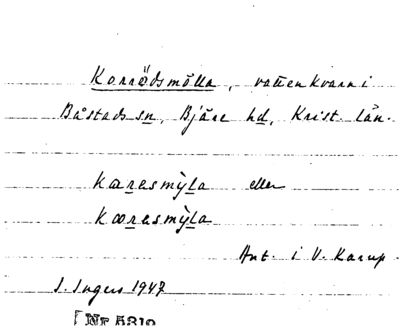 Korrödsmölla, vattenkvarn i
Båstads sn, Bjäre hd, Krist. län.
kæresmỳla eller
kæresmỳla
Ant. i V. Karup
I. Ingers 1947
Nr 5319